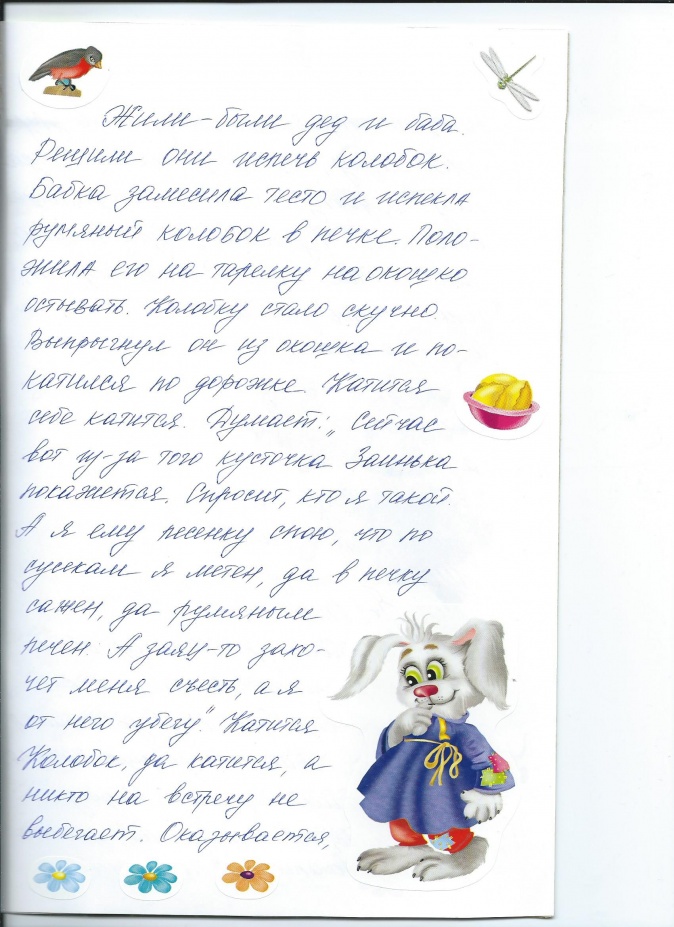 Жили-были дед и баба.
Решили они испечь колобок.
Бабка замесила тесто и испекла
румяный колобок в печке. Поло-
жила его на тарелку на окошко
остывать. Колобку стало скучно.
Выпрыгнул он из окошка и по-
катился по дорожке. Катится
себе катится. Думает: „Сейчас
вот из-за того кусточка Заинька
покажется. Спросит, кто я такой.
А я ему песенку спою, что по
сусекам я метен, да в печку
сажен, да румяным
печен. А заяц-то захо-
чет меня съесть, а я
от него убегу". Катится
Колобок, да катится, а
никто на встречу не
выбегает. Оказывается,